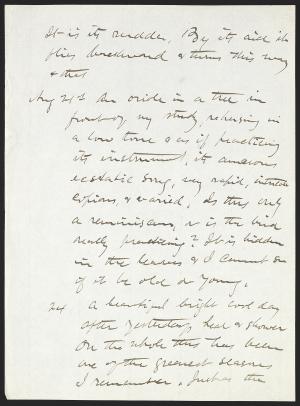 It is its rudder, By its aid it
flies backward & turns this way
& that
Aug 21st An oriole in a tree in
front of my study, rehearsing in
a low tone & as if practicing
its instrument, its amorous
ecstatic song, very rapid,
copious, & varied, Is this only
a reminiscence, or is the bird
really practicing? It is hidden
in the leaves & I cannot see
if it be old or young.
24 A beautiful bright cool day
after yesterdays heat & shower
On the whole this has been
one of the greenest seasons
I remember. Such as the